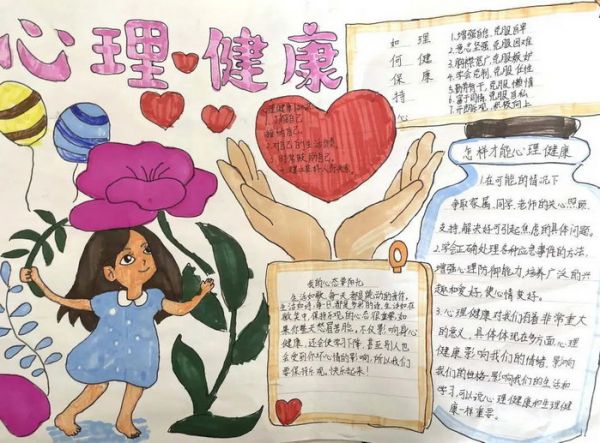 心理健康
如何保持心
理健康
1.增强自信,克服自卑
2.意志坚强,克服困难
3.胸襟宽广,克服嫉妒
4.学会克制,克服任性
5.勤奋肯干,克服懒惰
6.富于同情,克服自私
7.开朗乐观,积极向上
心理健康知识
1.了解自己
接纳自己
2.对自己的生活负责
3.时常鼓励自己
怎样才能心理健康
1.在可能的情况下
争取家属、同学、老师的关心,照顾,
支持,解决好可引起焦虑的具体问题。
2.学会正确处理各种应急事件的方法,
增强心理防御能力,培养广泛的兴
趣和爱好,使心情爽好。
3.心理健康对我们有着非常重大
的意义,具体体现在多方面,心理
健康影响我们的情绪,影响
我们的性格,影响我们的生活和
学习,可以说心理健康和生理健
康一样重要。
我的心态要阳光
生活如歌,每一天都是跳动的音符,
生活如诗,每一日都是多彩的话,生活如在
歌其中,保持乐观的心态很重要,如
果你整天愁眉苦脸,不仅影响身心
健康,还会使学习下降,甚至别人也
会受到你坏心情的影响,所以我们
要保持乐观,快乐起来!